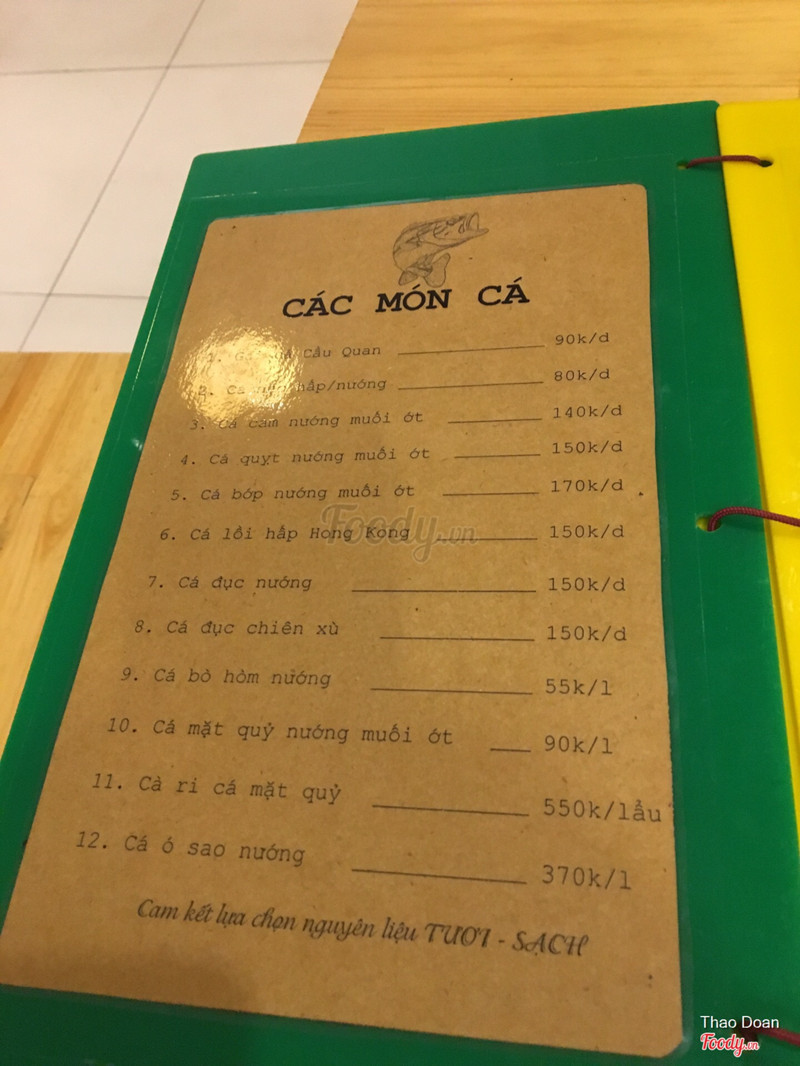 CÁC MÓN CÁ
1. Gỏi Cầu Quan 90k/d
2. hấp/nướng 80k/d
3. Cá cam nướng muối ớt 140k/d
4. Cá quỵt nướng muối ớt 150k/d
5. Cá bóp nướng muối ớt 170k/d
6. Cá lồi hấp Hong Kong 150k/d
7. Cá đục nướng 150k/d
8. Cá đục chiên xù 150k/d
9. Cá bò hòm nướng 55k/l
10. Cá mặt quỷ nướng muối ớt 90k/l
11. Cà ri cá mặt quỷ 550k/lẩu
12. Cá ó sao nướng 370k/l
Cam kết lựa chọn nguyên liệu TƯƠI - SẠCH
Foody.vn
Thao Doan
Foody.vn